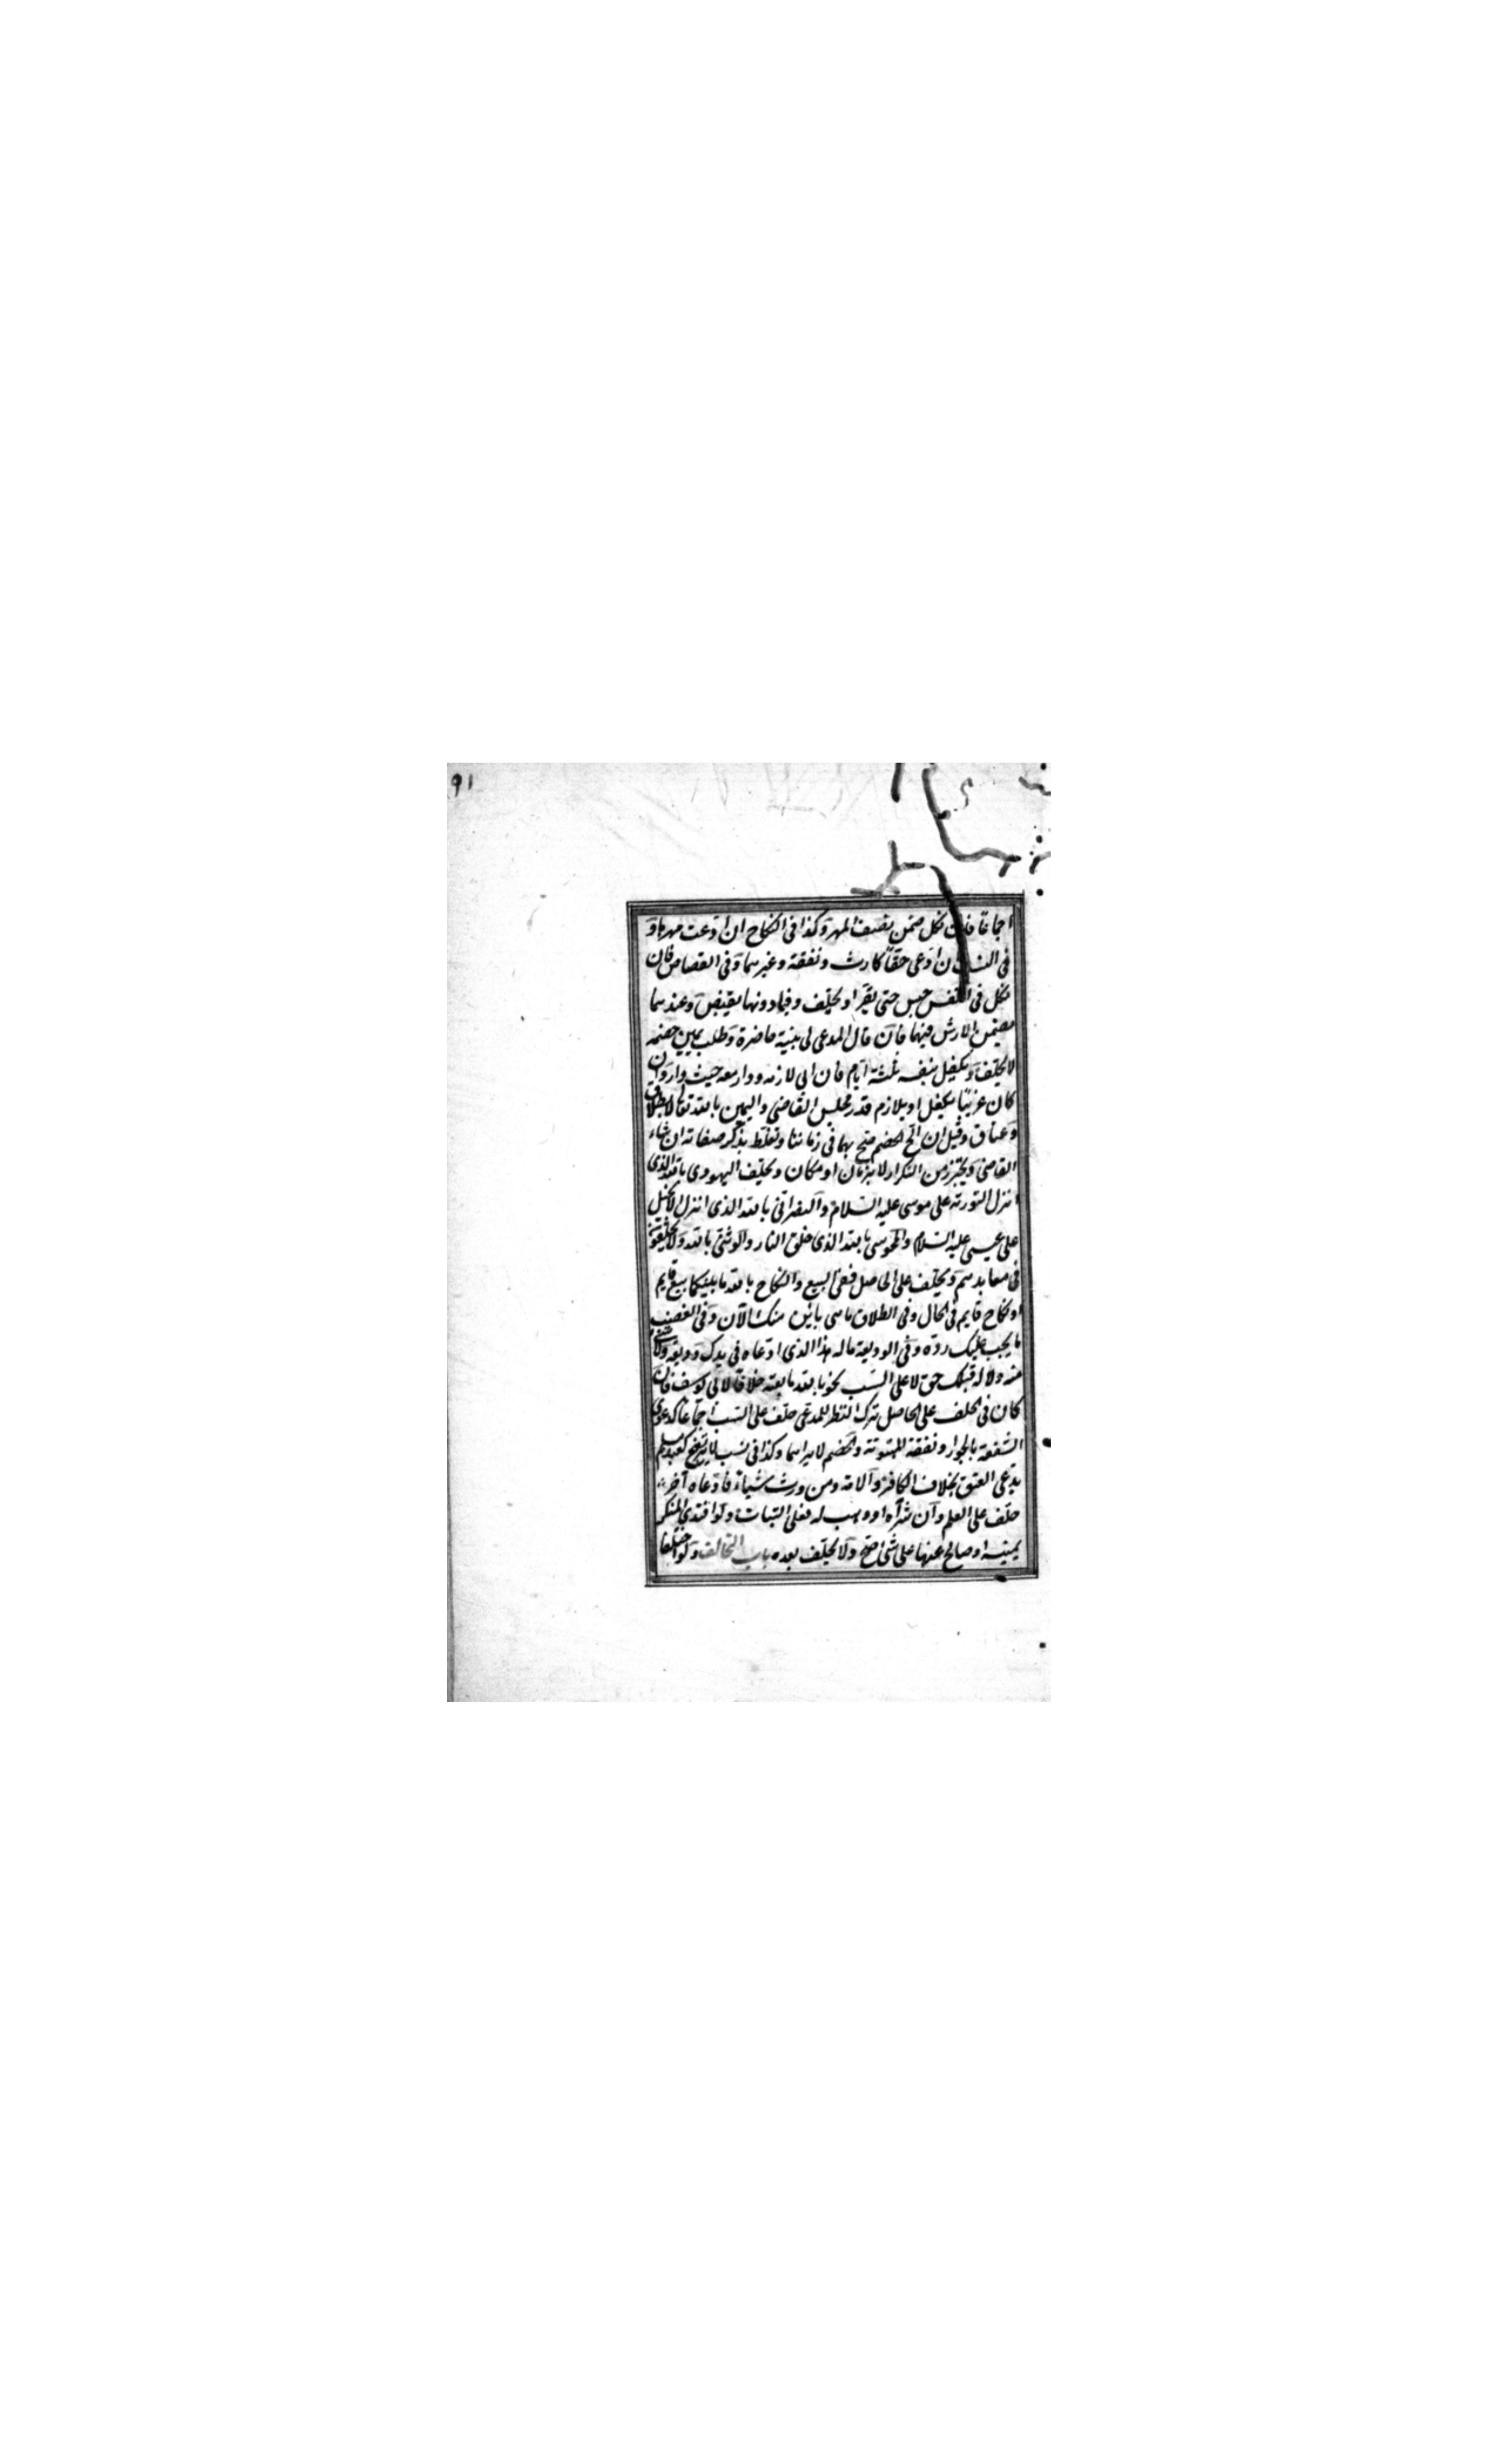 ٩١
اجماعا فان نكل ضمن نصف المهر وكذا فى النكاح ان ادعت مهرها و
فى النسب ان ادعى حقا كارث ونفقة وغيرهما وفى القصاص فان
نكل فى النفس حبس حتى يقر او يحلف وفيما دونها يقتص وعندهما
يضمن الارش فيهما فان قال المدعى لى بينة حاضرة وطلب يمين خصمه
لا يحلف ويكفل بنفسه ثلثة ايام فان ابى لازمه ودار معه حيث دار وان
كان غريبا يكفل او يلازم قدر مجلس القاضى واليمين بالله تعالى لا بطلاق
وعتاق وقيل ان الح الخصم صح بهما فى زماننا وتغلظ بذكر صفاته ان شاء
القاضى ويحترز من التكرار لا بزمان او مكان ويحلف اليهودى بالله الذى
انزل التورية على موسى عليه السلام والنصرانى بالله الذى انزل الانجيل
على عيسى عليه السلام والمجوسى بالله الذى خلق النار والوثنى بالله ولا يحلفون
فى معابدهم ويحلف على الحاصل ففى البيع والنكاح بالله ما بينكما بيع قايم
او نكاح قايم فى الحال وفى الطلاق ما هى باين منك الآن وفى الغصب
ما يجب عليك رده وفى الوديعة ما له هذا الذى ادعاه فى يدك وديعة ولا شئ
منه ولا له قبلك حق لا على السبب نحو بالله ما بعته خلافا لابى يوسف فان
كان فى الحلف على الحاصل ترك النظر للمدعى حلف على السبب اجماعا كدعوى
الشفعة بالجوار ونفقة المبتوتة والخصم لا يراهما وكذا فى سبب لا يرتفع كعبد مسلم
يدعى العتق بخلاف الكافر والامة ومن ورث شيئا فادعاه آخر
حلف على العلم وان شراه او وهب له فعلى البتات ولو افتدى المنكر
يمينه او صالح عنها على شئ صح ولا يحلف بعده باب التحالف ولو اختلفا